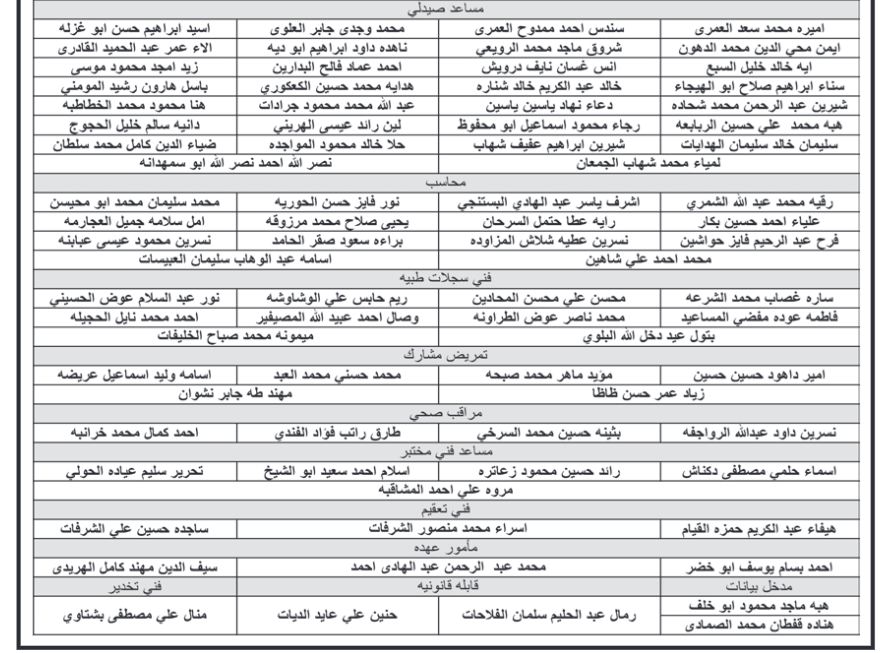 مساعد صيدلي
اميره محمد سعد العمرى سندس احمد ممدوح العمرى محمد وجدى جابر العلوى اسيد ابراهيم حسن ابو غزله
ايمن محي الدين محمد الدهون شروق ماجد محمد الرويعي ناهده داود ابراهيم ابو ديه الاء عمر عبد الحميد القادرى
ايه خالد خليل السبع انس غسان نايف درويش احمد عماد فالح البدارين زيد امجد محمود موسى
سناء ابراهيم صلاح ابو الهيجاء خالد عبد الكريم خالد شناره هدايه محمد حسين الكعكورى باسل هارون رشيد المومني
شيرين عبد الرحمن محمد شحاده دعاء نهاد ياسين ياسين عبد الله محمد محمود جرادات هنا محمود محمد الخطاطبه
هبه محمد علي حسين الربابعه رجاء محمود اسماعيل ابو محفوظ لين رائد عيسى الهريني دانيه سالم خليل الحجوج
سليمان خالد سليمان الهدايات شيرين ابراهيم عفيف شهاب حلا خالد محمود المواجده ضياء الدين كامل محمد سلطان
لمياء محمد شهاب الجمعان نصر الله احمد نصر الله ابو سمهدانه
محاسب
رقيه محمد عبد الله الشمري اشرف ياسر عبد الهادي البستنجي نور فايز حسن الحوريه محمد سليمان محمد ابو محيسن
علياء احمد حسين بكار رايه عطا حتمل السرحان يحيى صلاح محمد مرزوقه امل سلامه جميل العجارمه
فرح عبد الرحيم فايز حواشين نسرين عطيه شلاش المزاوده براءه سعود صقر الحامد نسرين محمود عيسى عبابنه
محمد احمد علي شاهين اسامه عبد الوهاب سليمان العبيسات
فني سجلات طبيه
ساره غصاب محمد الشرعه محسن علي محسن المحادين ريم حابس علي الوشاوشه نور عبد السلام عوض الحسيني
فاطمه عوده مفضي المساعيد محمد ناصر عوض الطراونه وصال احمد عبيد الله المصيفير احمد محمد نايل الحجيله
بتول عيد دخل الله البلوي ميمونه محمد صباح الخليفات
تمريض مشارك
امير داهود حسين حسين مؤيد ماهر محمد صبحه محمد حسني محمد العبد اسامه وليد اسماعيل عريضه
زياد عمر حسن ظاظا مهند طه جابر نشوان
مراقب صحي
نسرين داود عبدالله الرواجفه بثينه حسين محمد السرخي طارق راتب فؤاد الفندي احمد كمال محمد خرانبه
مساعد فني مختبر
اسماء حلمي مصطفى دكناش رائد حسين محمود زعاتره اسلام احمد سعيد ابو الشيخ تحرير سليم عياده الحولي
مروه علي احمد المشاقبه
فني تعقيم
هيفاء عبد الكريم حمزه القيام اسراء محمد منصور الشرفات ساجده حسين علي الشرفات
مأمور عهده
احمد بسام يوسف ابو خضر محمد عبد الرحمن عبد الهادى احمد سيف الدين مهند كامل الهريدى
مدخل بيانات قابله قانونيه فني تخدير
هبه ماجد محمود ابو خلف رمال عبد الحليم سلمان الفلاحات حنين علي عايد الديات منال علي مصطفى بشتاوي
هناده قفطان محمد الصمادى